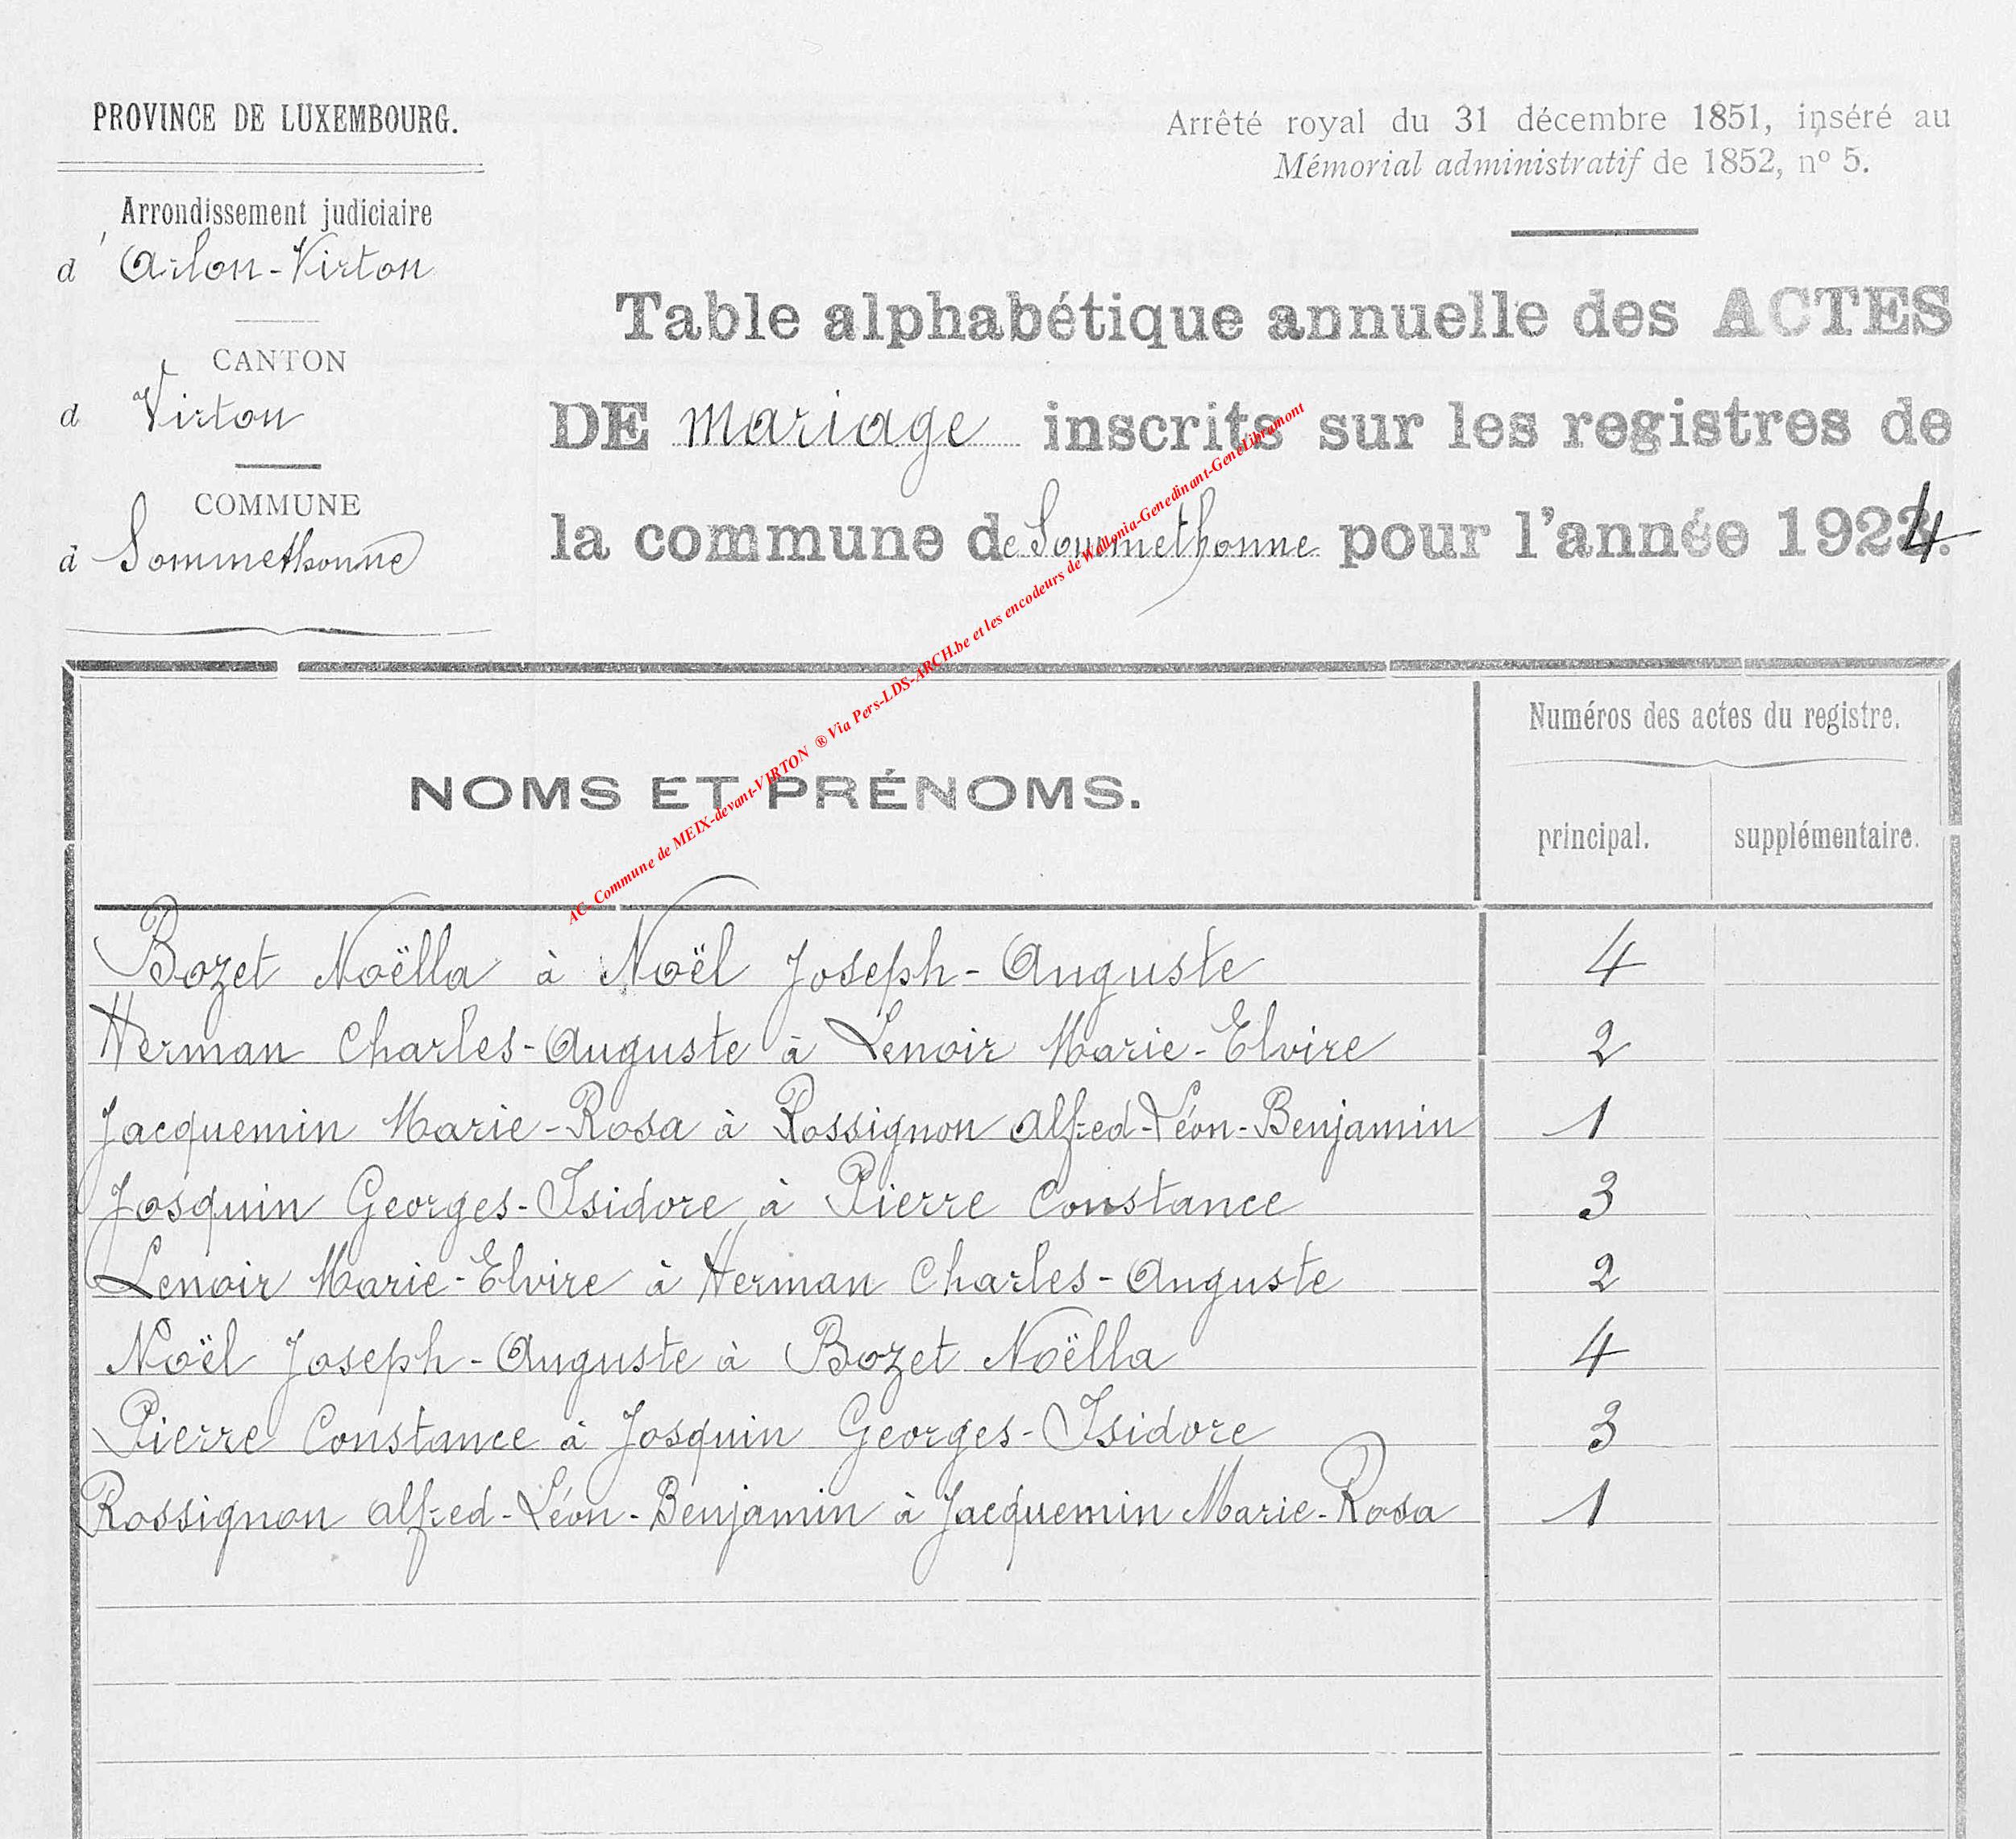 PROVINCE DE LUXEMBOURG.
Arrondissement judiciaire
d'Arlon-Virton
CANTON
d Virton
COMMUNE
d Sommethonne
Arrêté royal du 31 décembre 1851, inséré au
Mémorial administratif de 1852, nº 5.
Table alphabétique annuelle des ACTES
DE mariage inscrits sur les registres de
la commune de Sommethonne pour l'année 1924.
AC- Commune de MEIX-devant-VIRTON ® Via Pers-LDS-ARCH.be et les encodeurs de Wallonia-Genedinant-GeneLibramont
NOMS ET PRÉNOMS.
Numéros des actes du registre.
principal. supplémentaire.
Bozet Noëlla à Noël Joseph-Auguste 4
Herman Charles-Auguste à Lenoir Marie-Elvire 2
Jacquemin Marie-Rosa à Rossignon Alfred-Léon-Benjamin 1
Josquin Georges-Isidore à Pierre Constance 3
Lenoir Marie-Elvire à Herman Charles-Auguste 2
Noël Joseph-Auguste à Bozet Noëlla 4
Pierre Constance à Josquin Georges-Isidore 3
Rossignon Alfred-Léon-Benjamin à Jacquemin Marie-Rosa 1